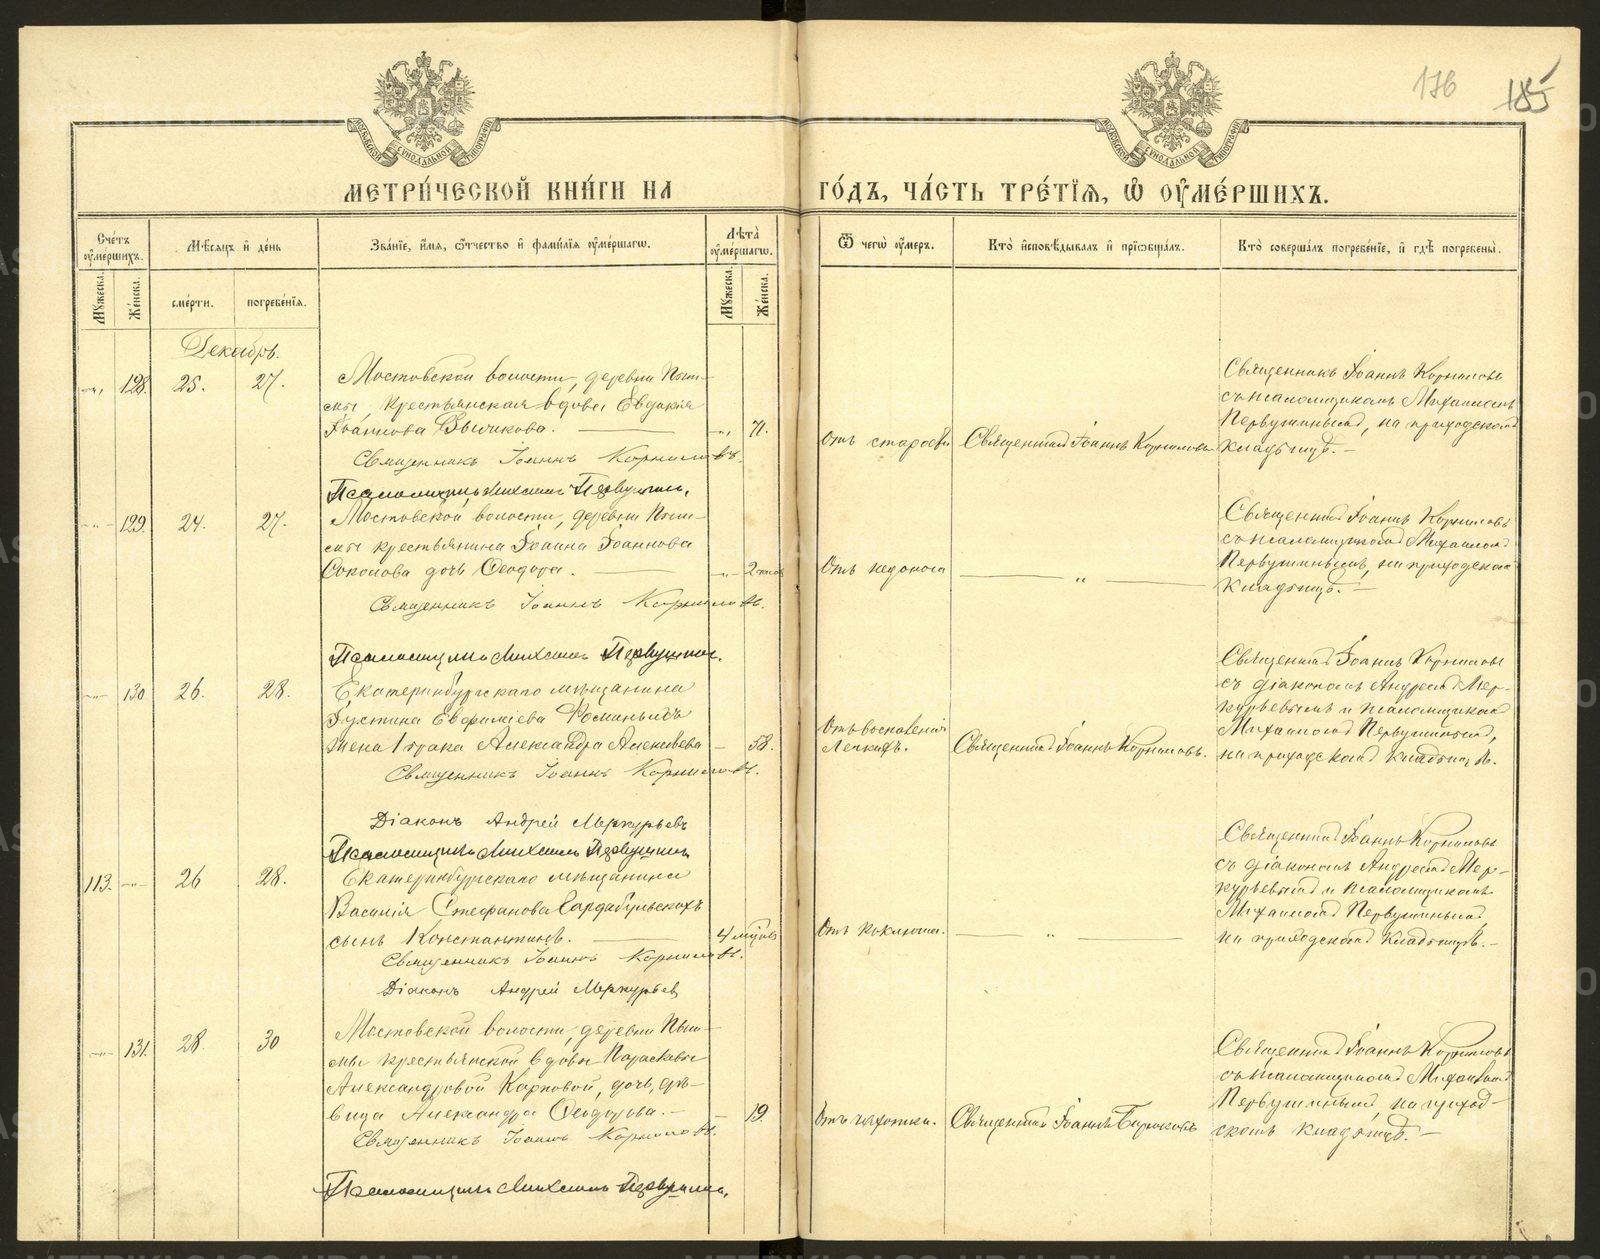 176 185
МОСКОВСКОЙ СѴНОДАЛЬНОЙ ТИПОГРАФІИ
МОСКОВСКОЙ СѴНОДАЛЬНОЙ ТИПОГРАФІИ
МЕТРИ́ЧЕСКОЙ КНИ́ГИ НА ГО́ДЪ, ЧА́СТЬ ТРЕ́ТІЯ, Ѡ҆ ОУ҆МЕ́РШИХЪ.
Сче́тъ оу҆ме́ршихъ.
Мꙋжеска. Же́нска.
Мѣ́сяцъ и҆ де́нь
сме́рти. погребе́нїя.
Зва́нїе, и҆́мя, ѻ҆́тчество и҆ фами́лїя оу҆ме́ршагѡ.
Лѣ́та оу҆ме́ршагѡ.
Мꙋжеска. Же́нска.
Ѿ чегѡ̀ оу҆́меръ.
Кто̀ и҆сповѣ́дывалъ и҆ прїѡбща́лъ.
Кто̀ соверша́лъ погребе́нїе, и҆ гдѣ̀ погребены̀.
Декабрь.
128 25. 27.
Мостовской волости, деревни Пыш-
мы, крестьянская вдова Евдокія
Іоаннова Бычкова. 71.
Священникъ Іоаннъ Корниловъ.
Псаломщикъ Михаилъ Первушинъ.
Отъ старости
Священникъ Іоаннъ Корниловъ
Священникъ Іоаннъ Корниловъ
съ псаломщикомъ Михаиломъ
Первушинымъ, на приходскомъ
кладбищѣ.
129. 24. 27.
Мостовской волости, деревни Пыш-
мы крестьянина Іоанна Іоаннова
Соколова дочь Ѳеодора. 2 часа
Священникъ Іоаннъ Корниловъ.
Псаломщикъ Михаилъ Первушинъ.
Отъ недоноса
Священникъ Іоаннъ Корниловъ
съ псаломщикомъ Михаиломъ
Первушинымъ, на приходскомъ
кладбищѣ.
130 26. 28.
Екатеринбургскаго мѣщанина
Іустина Евфиміева
жена 1 брака Александра Алексѣева 58.
Священникъ Іоаннъ Корниловъ.
Діаконъ Андрей Меркурьевъ
Псаломщикъ Михаилъ Первушинъ
Отъ воспаленія
Легкихъ.
Священникъ Іоаннъ Корниловъ.
Священникъ Іоаннъ Корниловъ
съ діакономъ Андреемъ Мер-
курьевымъ и псаломщикомъ
Михаиломъ Первушинымъ,
на приходскомъ кладбищѣ.
113. 26 28.
Екатеринбургскаго мѣщанина
Василія Стефанова Сарапульскихъ
сынъ Константинъ. 4 мѣсяц
Священникъ Іоаннъ Корниловъ.
Діаконъ Андрей Меркурьевъ
Отъ коклюша.
Священникъ Іоаннъ Корниловъ
съ діакономъ Андреемъ Мер-
курьевымъ и псаломщикомъ
Михаиломъ Первушинымъ
на приходскомъ кладбищѣ.
131. 28. 30
Мостовской волости, деревни Пыш-
мы крестьянской вдовы Параскевы
Александровой Карповой, дочь, дѣ-
вица Александра Ѳеодорова. 19.
Священникъ Іоаннъ Корниловъ.
Псаломщикъ Михаилъ Первушинъ.
Отъ чахотки.
Священникъ Іоаннъ Бирюковъ
Священникъ Іоаннъ Корниловъ
съ псаломщикомъ Михаиломъ
Первушинымъ, на приход-
скомъ кладбищѣ.